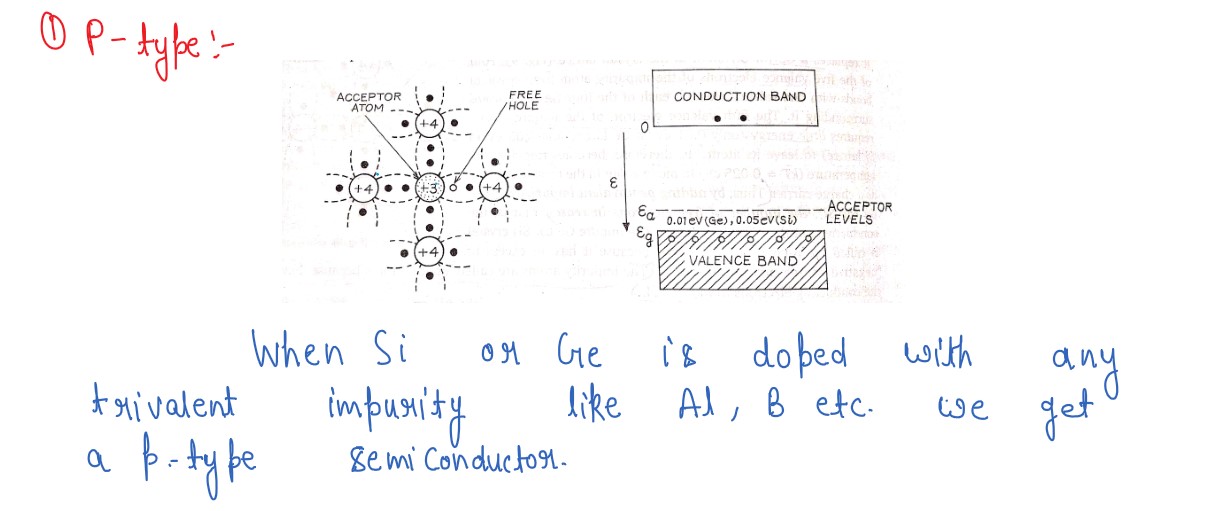 ① P-type:-
ACCEPTOR ATOM
FREE HOLE
+4
+4
+3
+4
+4
CONDUCTION BAND
0
ε
εa
ACCEPTOR LEVELS
0.01eV(Ge), 0.05eV(Si)
εg
VALENCE BAND
When Si or Ge is doped with any
trivalent impurity like Al, B etc. we get
a p-type semiconductor.